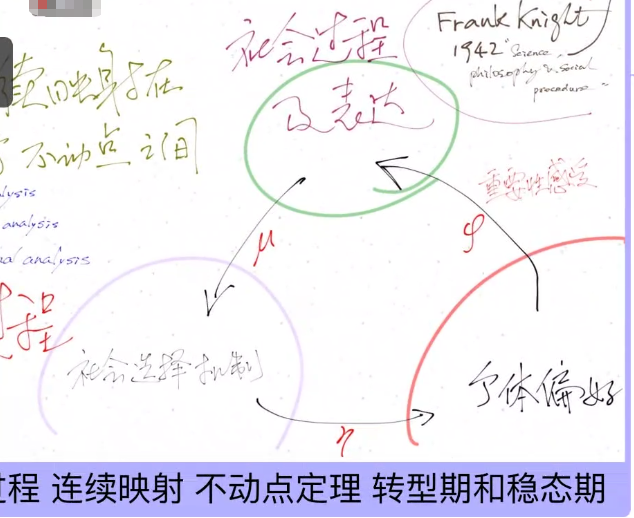 社会过程
及表达
Frank Knight
1942 "Science,
philosophy & social
procedure"
续映射在
不动点之间
lysis
analysis
al analysis
重要性感受
μ
φ
过程
社会选择机制
个体偏好
η
过程 连续映射 不动点定理 转型期和稳态期